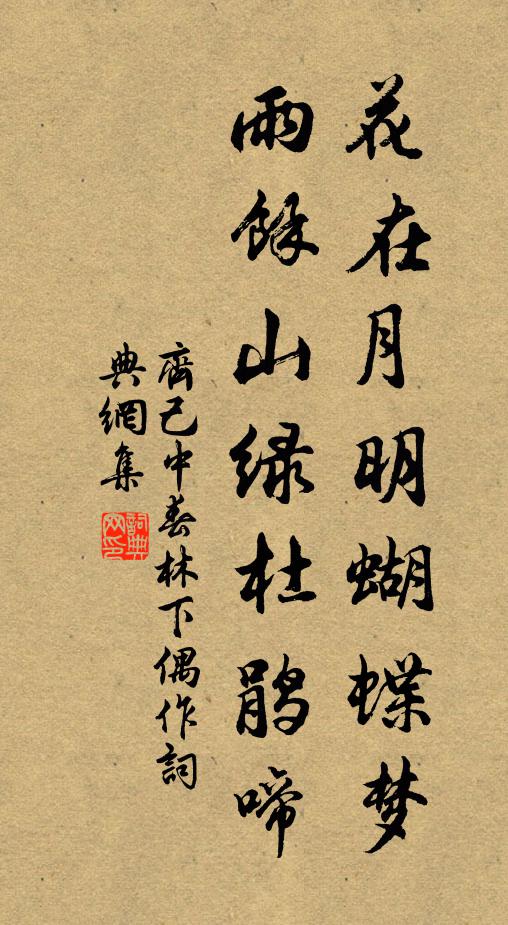 花在月明蝴蝶梦
雨餘山绿杜鹃啼
齊己中春林下偶作詞
典網集
詞典网印